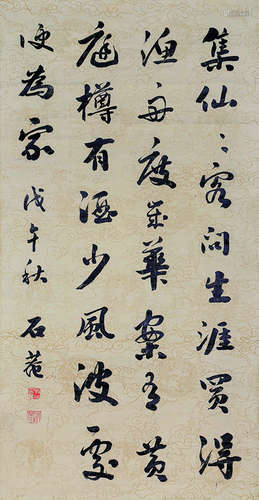 集仙〻客問生涯買得
漁舟度歲華案有黃
庭樽有酒少風波處
便為家 戊午秋 石菴